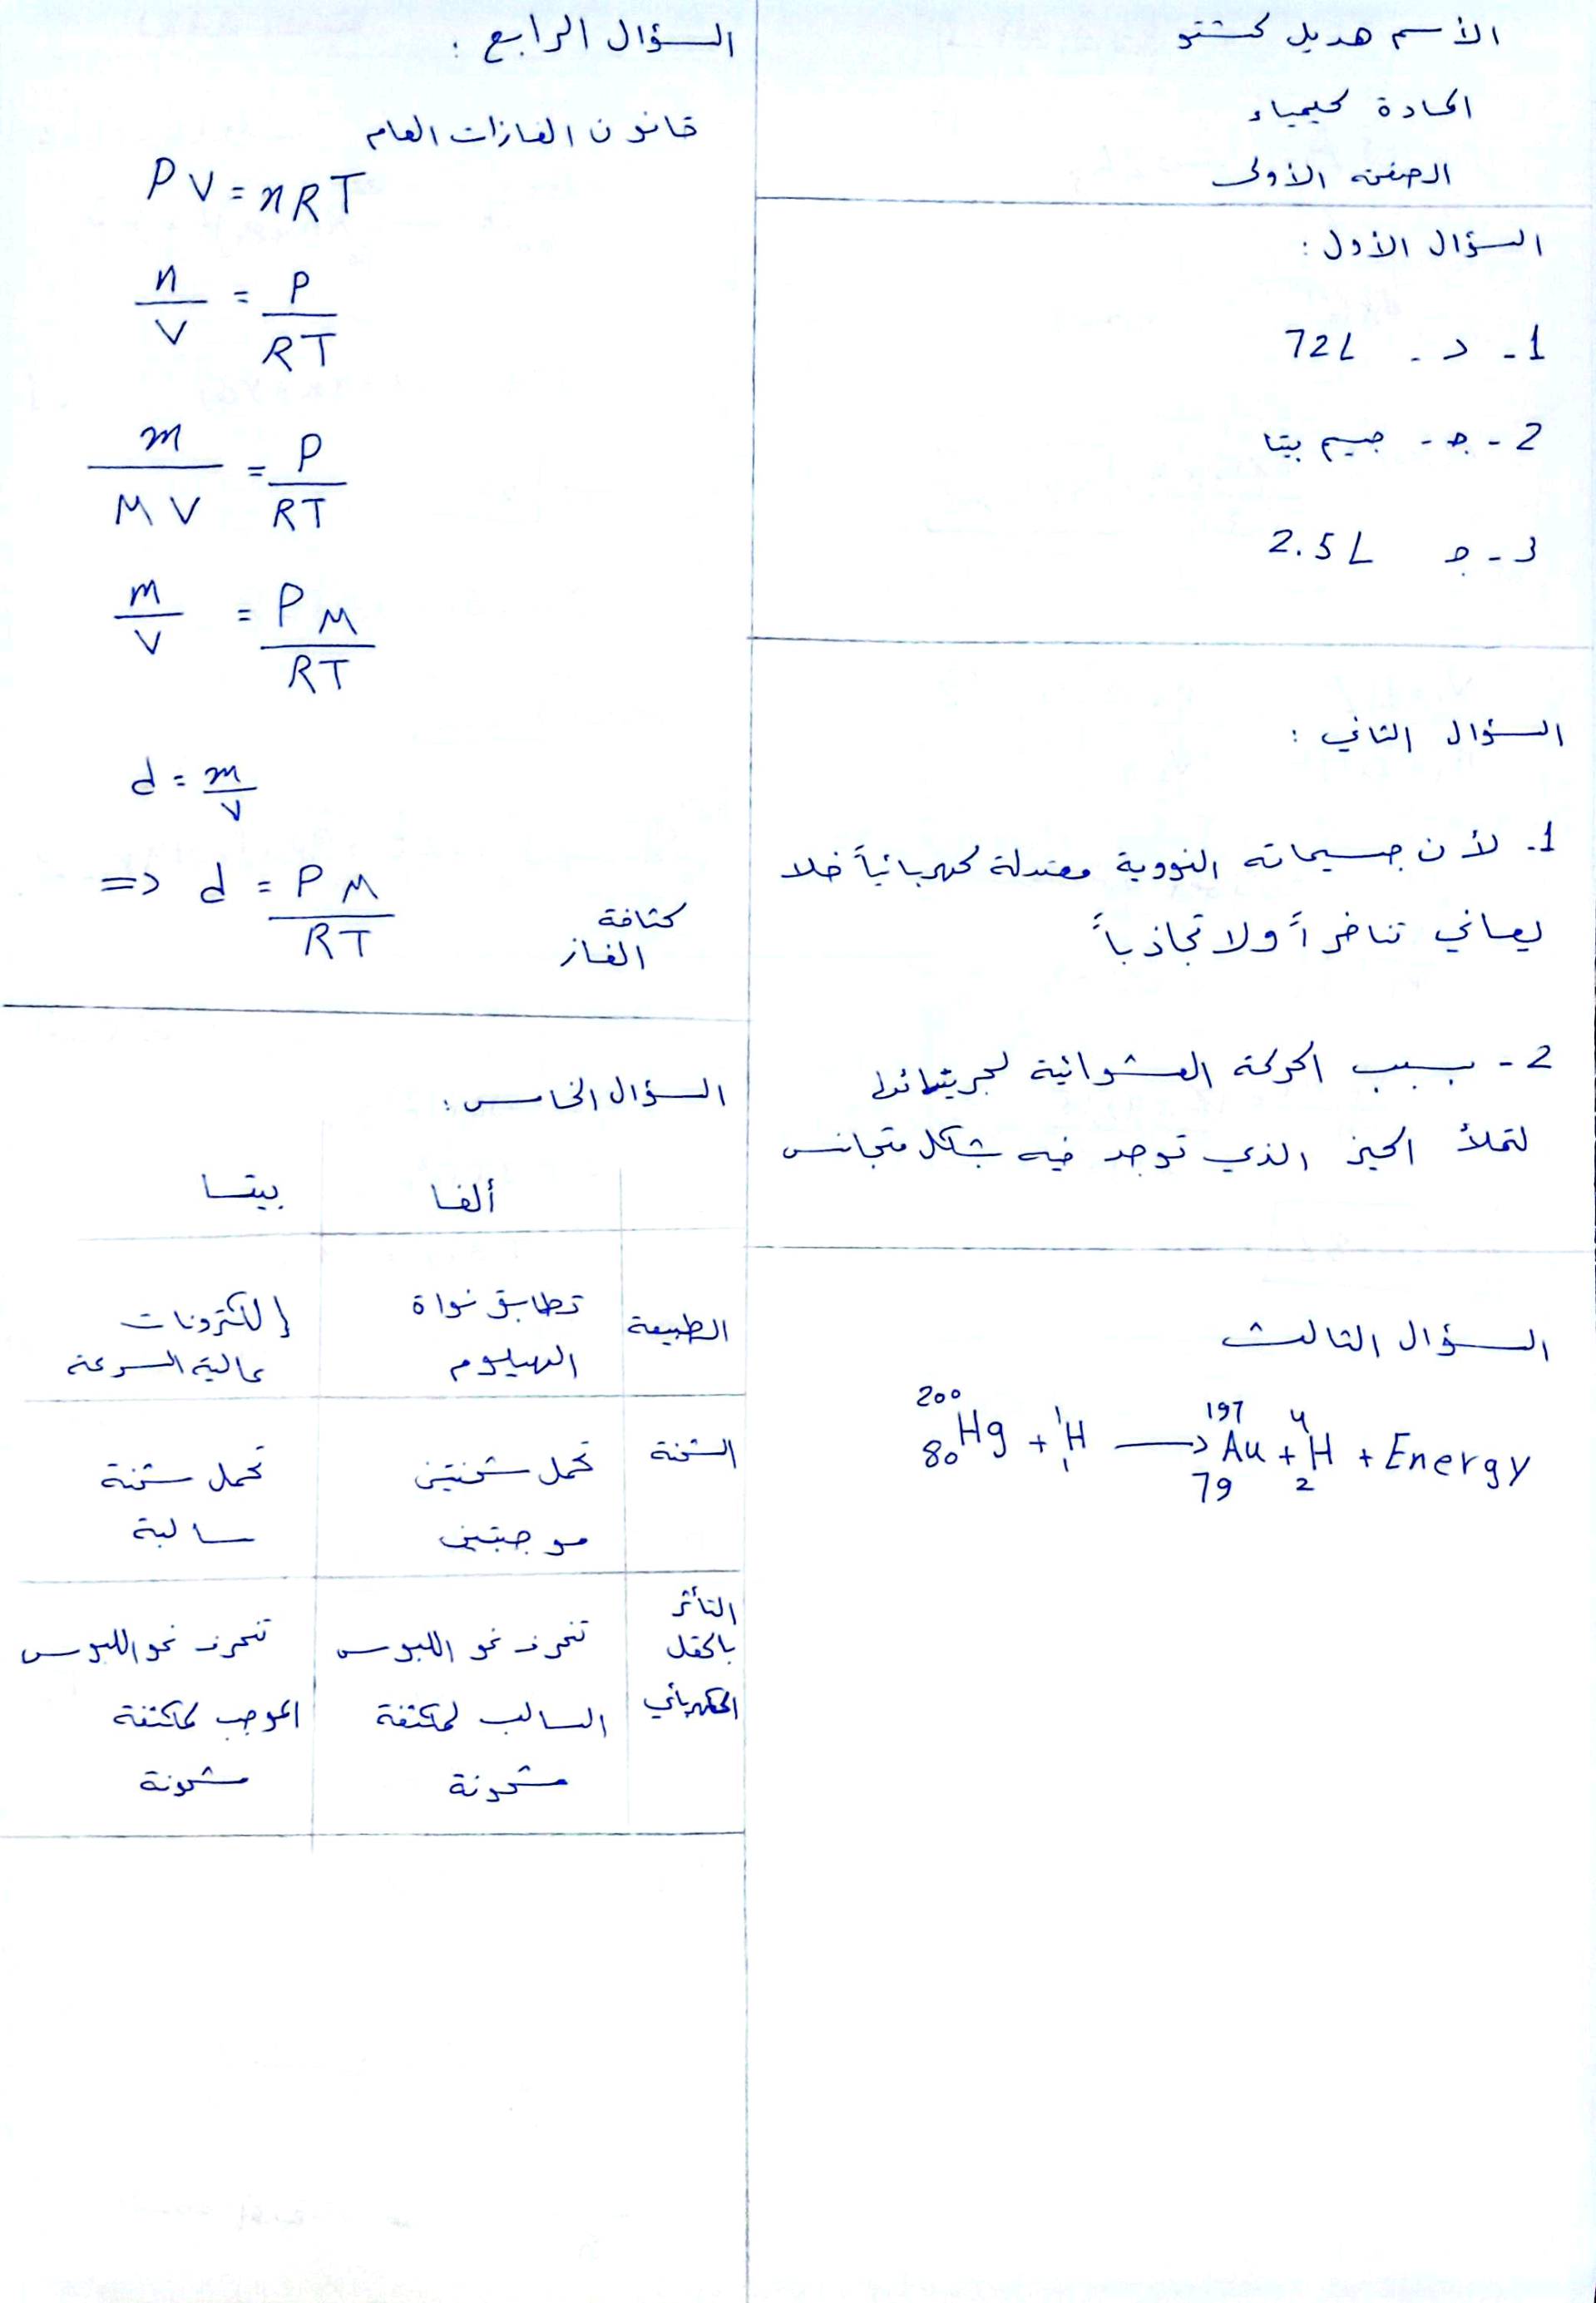 الأسم هديل كشتو
المادة كيمياء
الصفحة الأولى
السؤال الأول :
1 - د - 72L
2 - جـ - جسيم بيتا
3 - جـ 2.5L
السؤال الثاني :
1. لأن جسيماته النووية معتدلة كهربائياً فلا
يعاني تنافراً ولا تجاذباً
2 - بسبب الحركة العشوائية
لتملأ الحيز الذي توجد فيه بشكل متجانس
السؤال الثالث
²⁰⁰₈₀Hg + ¹₁H → ¹⁹⁷₇₉Au + ⁴₂H + Energy
السؤال الرابع :
قانون الغازات العام
PV = nRT
n/V = P/RT
m/MV = P/RT
m/V = PM/RT
d = m/V
=> d = PM/RT كثافة
الغاز
السؤال الخامس :
ألفا بيتا
الطبيعة تطابق نواة إلكترونات
الهيليوم عالية السرعة
الشحنة تحمل شحنتين تحمل شحنة
موجبتين سالبة
التأثر
بالحقل تنحرف نحو اللبوس تنحرف نحو اللبوس
الكهربائي السالب لمكثفة الموجب لمكثفة
مشحونة مشحونة